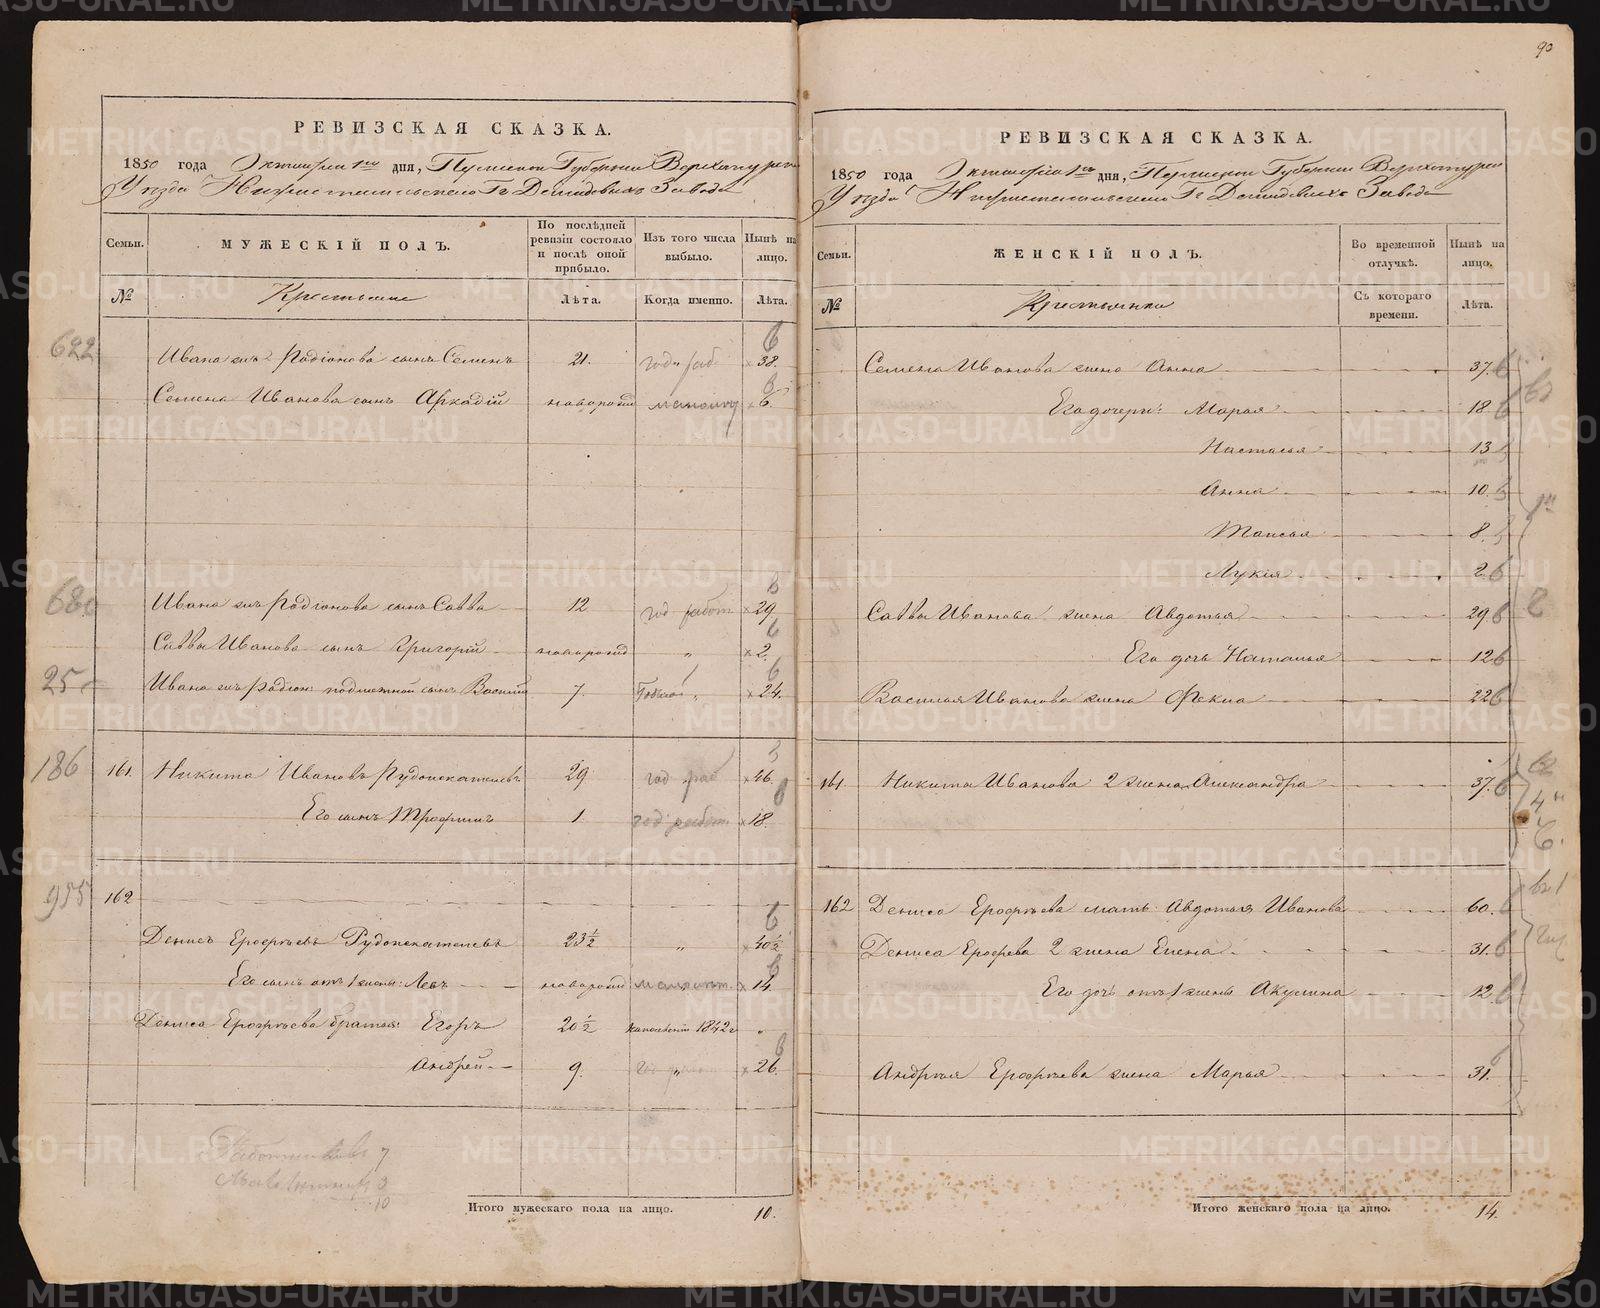 РЕВИЗСКАЯ СКАЗКА.
1850 года Октября 1го дня, Пермской Губернии Верхотурскаго
Уезда Нижнетагильскаго Гг Демидовыхъ Завода
Семьи. МУЖЕСКІЙ ПОЛЪ. По послѣдней ревизіи состояло и послѣ оной прибыло. Изъ того числа выбыло. Нынѣ на лицо.
№ Крестьяне Лѣта. Когда именно. Лѣта.
622 Ивана Родіонова сынъ Семенъ 21. год. раб 38.
Семена Иванова сынъ Аркадій новорожд малолет 6.
680 Ивана Родіонова сынъ Савва 12 год работ 29
Саввы Иванова сынъ Григорій новорожд „ 2.
25 Ивана Родіон: сынъ Василій 7. 24.
186 161. Никита Ивановъ Рудоискатель 29 год раб 46.
Его сынъ Трофимъ 1. год работ 18.
955 162
Денисъ Ерофѣевъ Рудоискателевъ 23 1/2 „ 40 1/2
Его сынъ отъ 1 жены: Левъ новорожд малолет. 14.
Дениса Ерофѣева братья: Егоръ 20 1/2 1842 г „
Андрей 9. „ 26.
Работниковъ 7
Малолетнихъ 3
10
Итого мужескаго пола на лицо. 10.
90
РЕВИЗСКАЯ СКАЗКА.
1850 года Октября 1го дня, Пермской Губерніи Верхотурскаго
Уезда Нижнетагильскаго Гг Демидовыхъ Завода
Семьи. ЖЕНСКІЙ ПОЛЪ. Во временной отлучкѣ. Нынѣ на лицо.
№ Крестьянки Съ котораго времени. Лѣта.
Семена Иванова жена Анна 37.
Его дочери: Марья 18
Настасья 13
Анна 10.
Таисья 8.
Лукія 2
Саввы Иванова жена Авдотья 29.
Его дочь Наталья 12
Василья Иванова жена Фекла 22
161. Никиты Иванова 2 жена Александра 37.
162 Дениса Ерофѣева мать Авдотья Иванова 60.
Дениса Ерофѣева 2 жена Елена 31.
Его дочь отъ 1 жены Акулина 12
Андрея Ерофѣева жена Марья 31.
Итого женскаго пола на лицо. 14.
METRIKI.GASO-URAL.RU